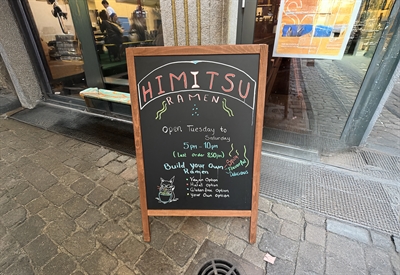 HIMITSU
HIMITSU
RAMEN
Open Tuesday to
Saturday
5pm - 10pm
(Last order 8:50pm)
Build Your Own
Ramen
• Vegan Option
• Halal Option
• Gluten Free Option
• Your Own Option
Delicious